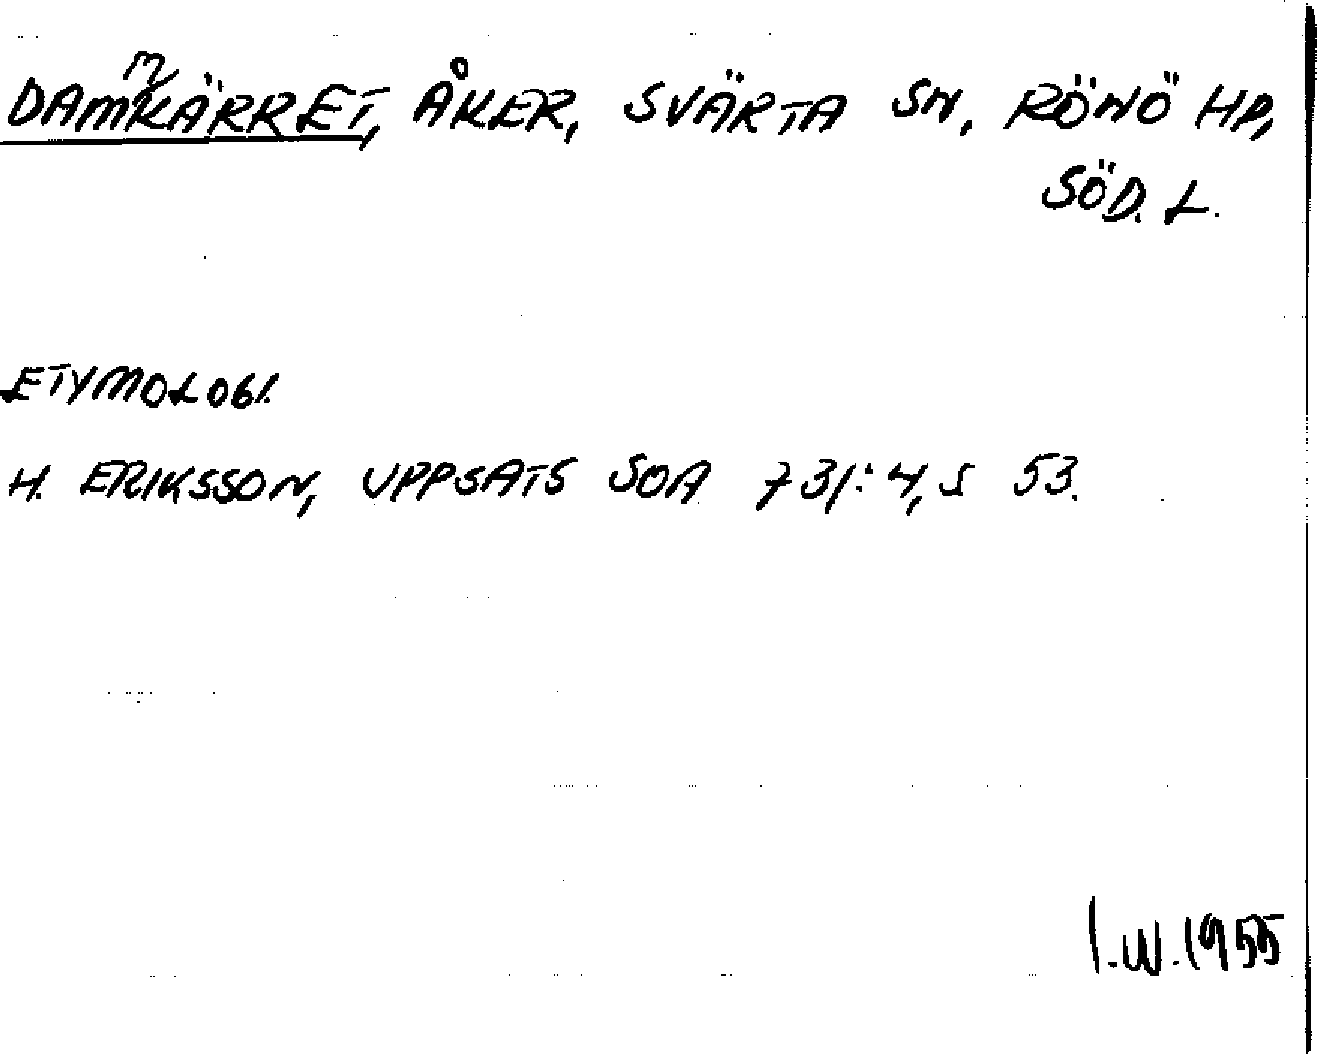 DAMMKÄRRET, ÅKER, SVÄRTA SN, RÖNÖ HD,
SÖD. L.
ETYMOLOGI.
H. ERIKSSON, UPPSATS SOA 731:4, S 53.
I.W.1955